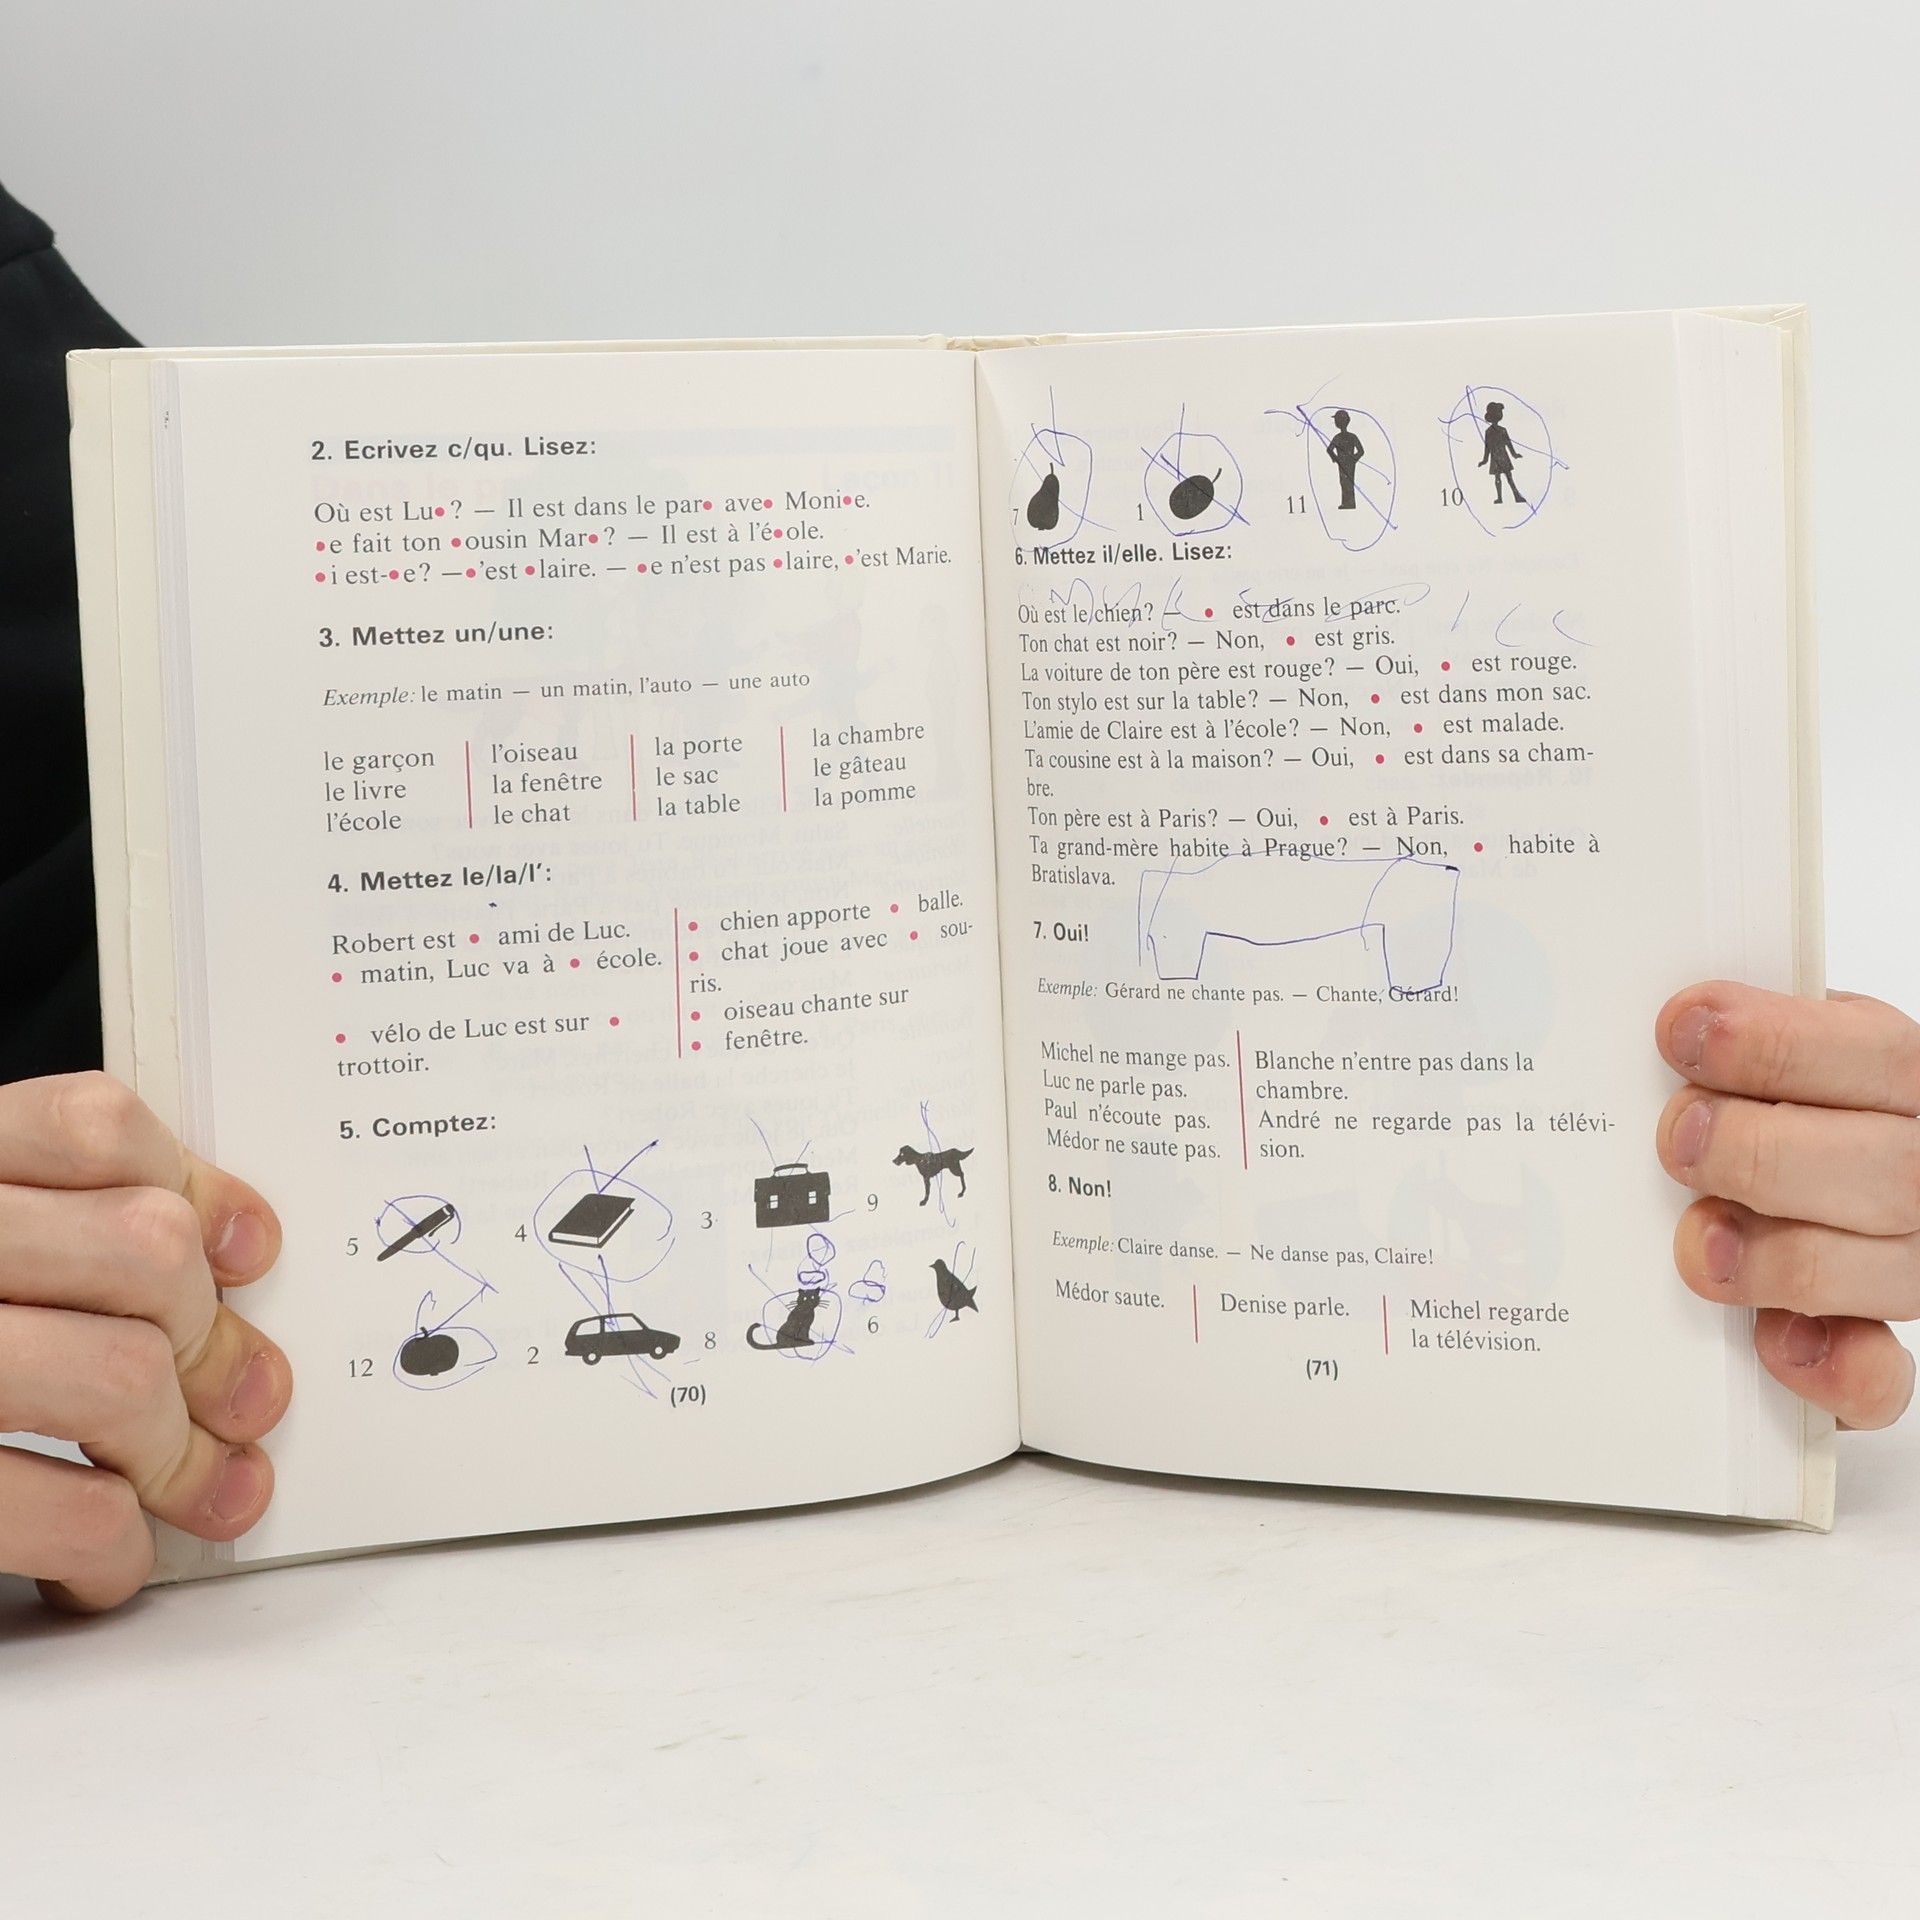 2. Ecrivez c/qu. Lisez:
Où est Lu•? — Il est dans le par• ave• Moni•e.
•e fait ton •ousin Mar•? — Il est à l'é•ole.
•i est-•e? —•'est •laire. — •e n'est pas •laire, •'est Marie.
3. Mettez un/une:
Exemple: le matin — un matin, l'auto — une auto
le garçon
le livre
l'école
l'oiseau
la fenêtre
le chat
la porte
le sac
la table
la chambre
le gâteau
la pomme
4. Mettez le/la/l':
Robert est • ami de Luc.
• matin, Luc va à • école.
• vélo de Luc est sur •
trottoir.
• chien apporte • balle.
• chat joue avec • sou-
ris.
• oiseau chante sur
• fenêtre.
5. Comptez:
5 4 3 9
12 2 8 6
(70)
7 1 11 10
6. Mettez il/elle. Lisez:
Où est le chien? — • est dans le parc.
Ton chat est noir? — Non, • est gris.
La voiture de ton père est rouge? — Oui, • est rouge.
Ton stylo est sur la table? — Non, • est dans mon sac.
L'amie de Claire est à l'école? — Non, • est malade.
Ta cousine est à la maison? — Oui, • est dans sa cham-
bre.
Ton père est à Paris? — Oui, • est à Paris.
Ta grand-mère habite à Prague? — Non, • habite à
Bratislava.
7. Oui!
Exemple: Gérard ne chante pas. — Chante, Gérard!
Michel ne mange pas.
Luc ne parle pas.
Paul n'écoute pas.
Médor ne saute pas.
Blanche n'entre pas dans la
chambre.
André ne regarde pas la télévi-
sion.
8. Non!
Exemple: Claire danse. — Ne danse pas, Claire!
Médor saute.
Denise parle.
Michel regarde
la télévision.
(71)